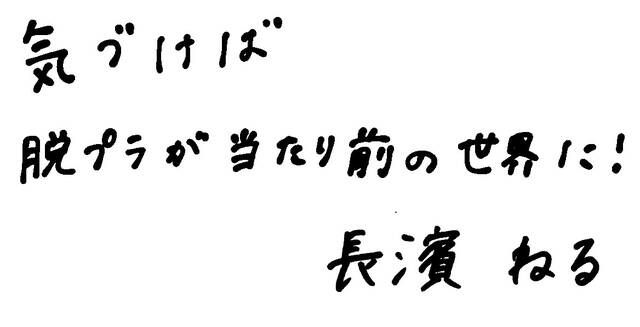 気づけば
脱プラが当たり前の世界に!
長濱 ねる